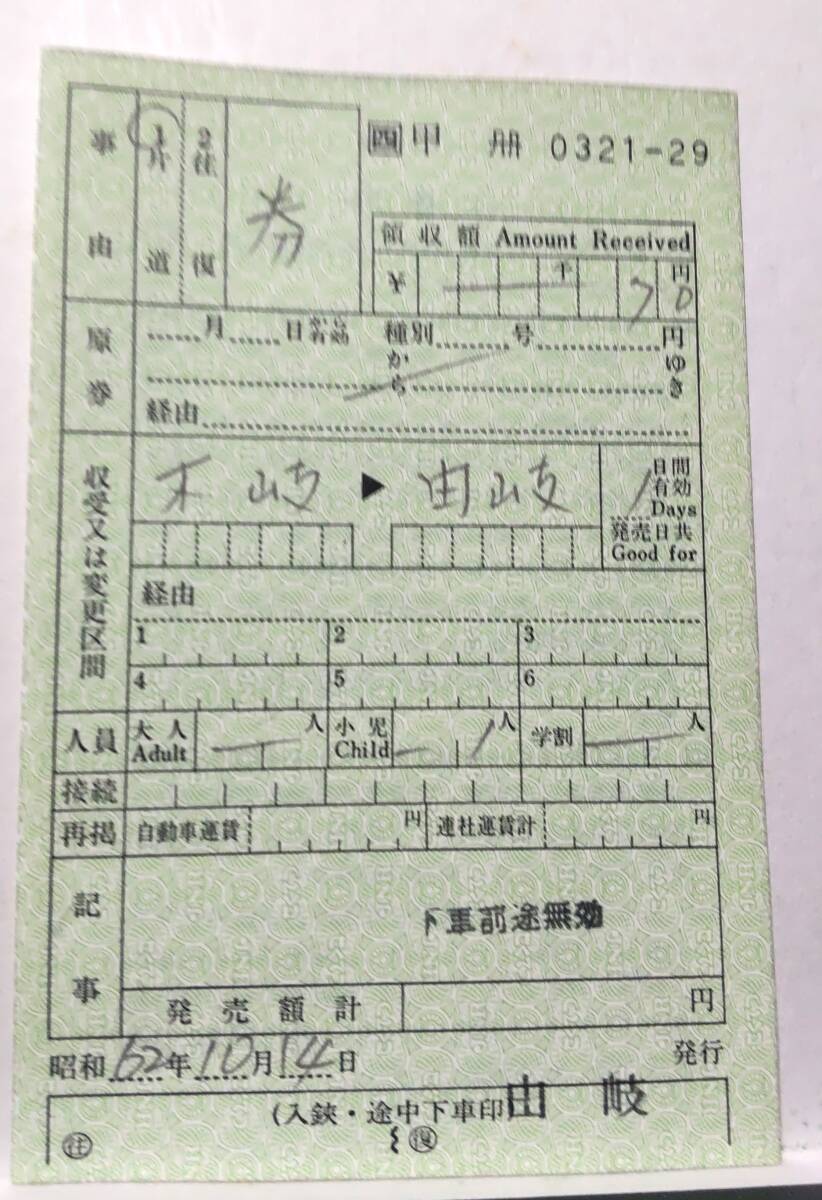 事由 1片道 2往復 券
四甲 冊 0321-29
領収額 Amount Received
¥ 千 7 0 円
原券 月 日から有効 種別 号 円
から ゆき
経由
収受又は変更区間 木岐 ▶ 由岐 1 日間有効 Days
発売日共
Good for
経由
1 2 3
4 5 6
人員 大人 Adult 人 小児 Child 1 人 学割 人
接続
再掲 自動車運賃 円 連社運賃計 円
記事 下車前途無効
発売額計 円
昭和 62 年 10 月 14 日 発行
(入鋏・途中下車印 由岐
往 復